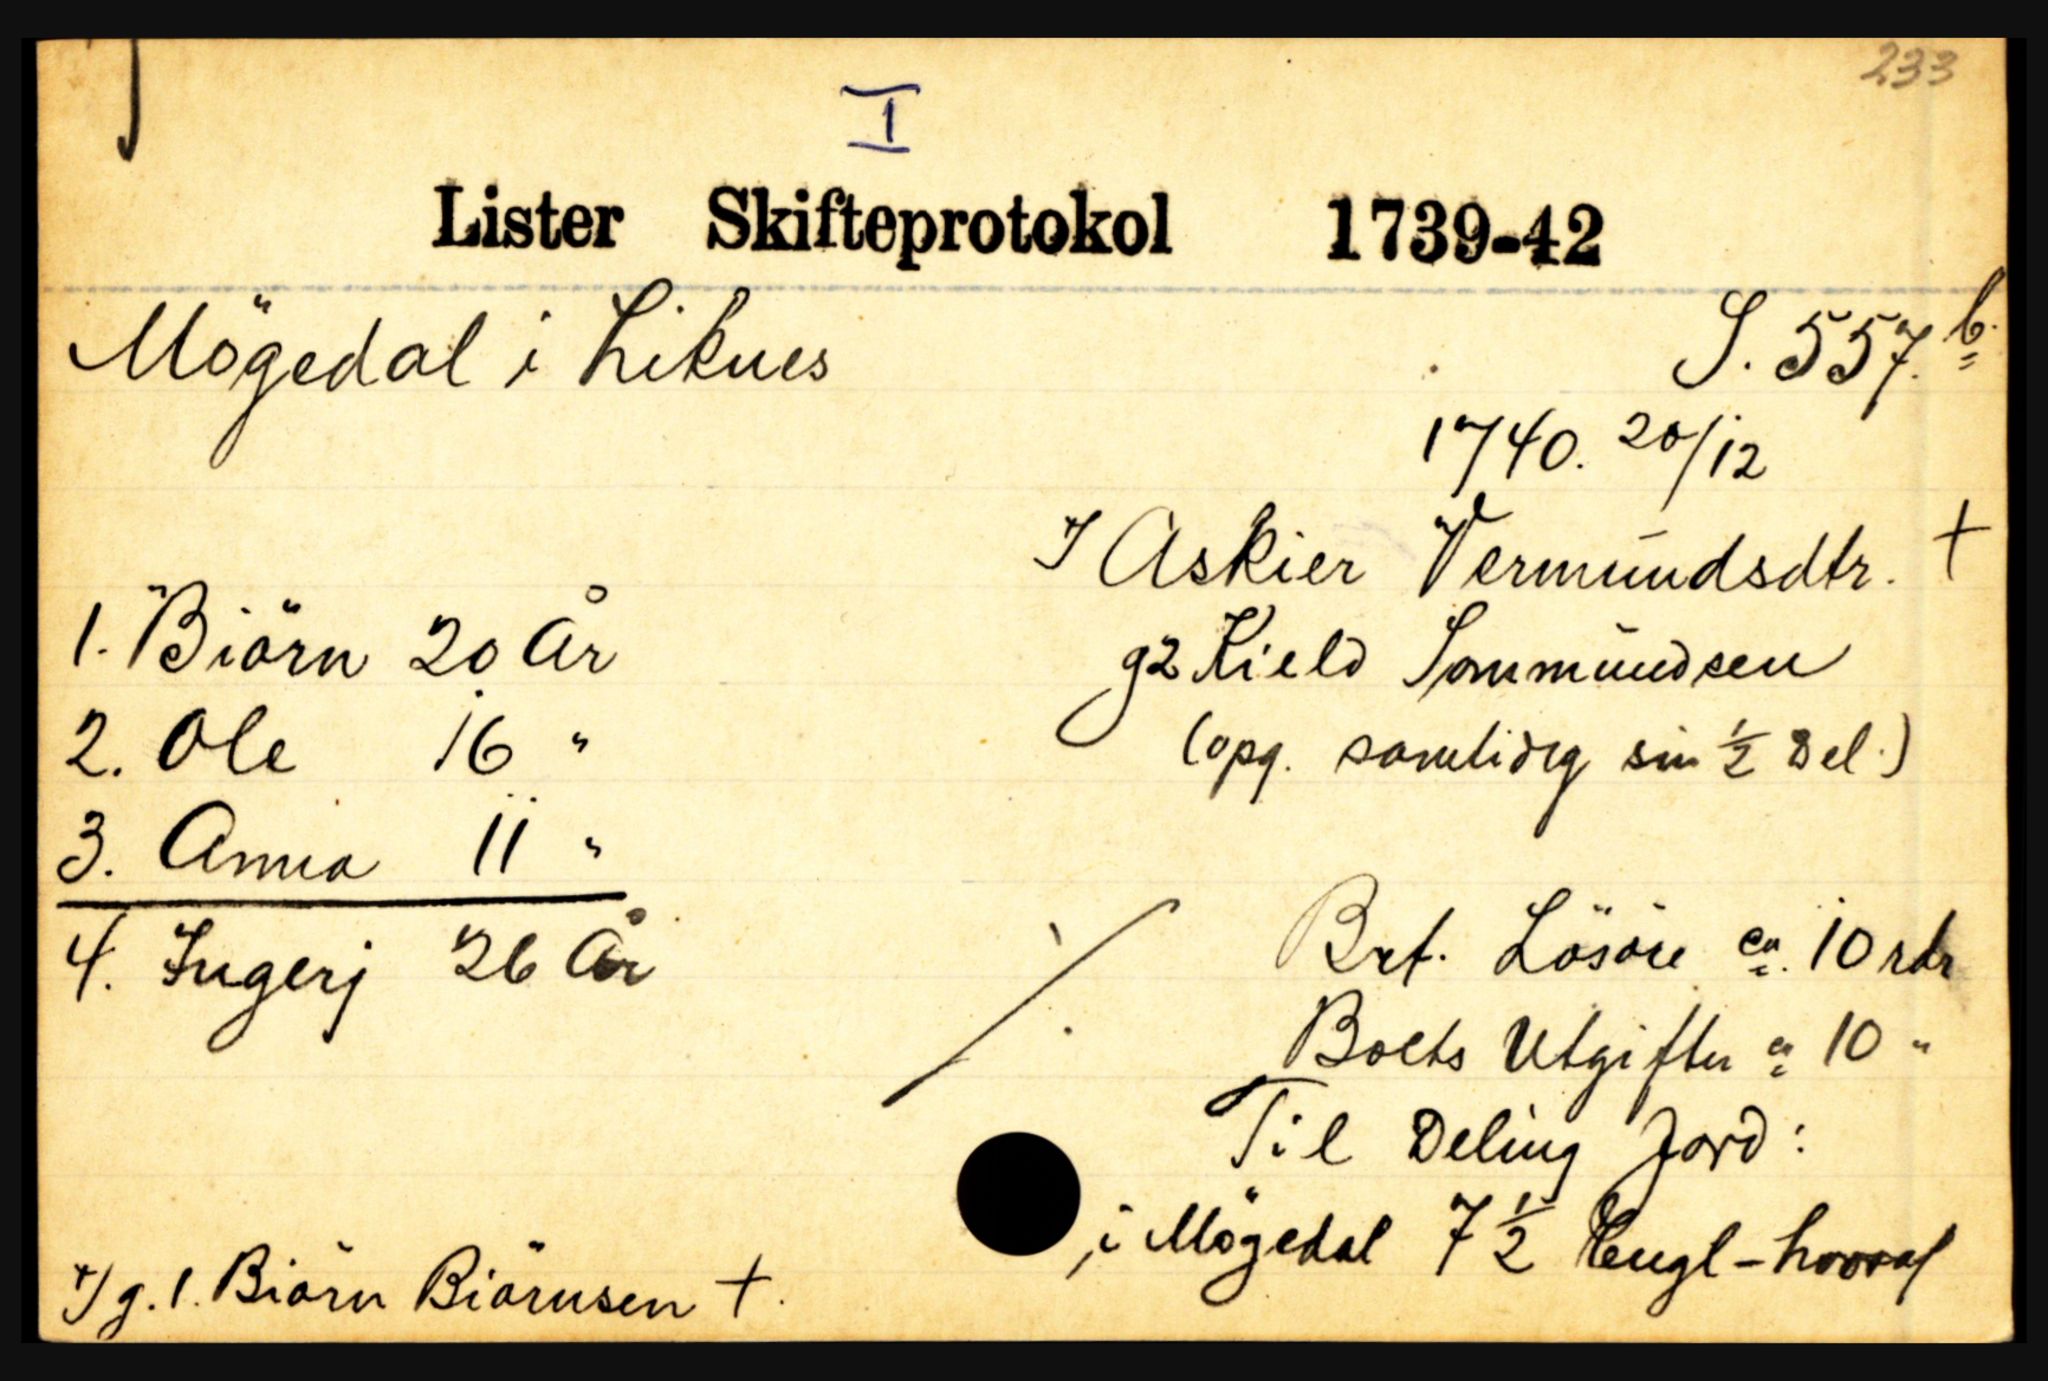 233
I
Lister Skifteprotokol 1739-42
Mögedal i Liknes
S. 557.b.
1740. 20/12
Askier Vermundsdtr. +
g2 Kield Sommundsen
(opg. samtidig sin ½ Del.)
1. Biörn 20 År
2. Ole 16 "
3. Anna 11 "
4. Ingerj 26 År
Brt. Lösöre ca. 10 rdr
Boets Utgifter ca 10 "
Til Deling Jord:
i Mögedal 7 ½ Engl - hvoraf
g. 1. Biörn Biörnsen +.